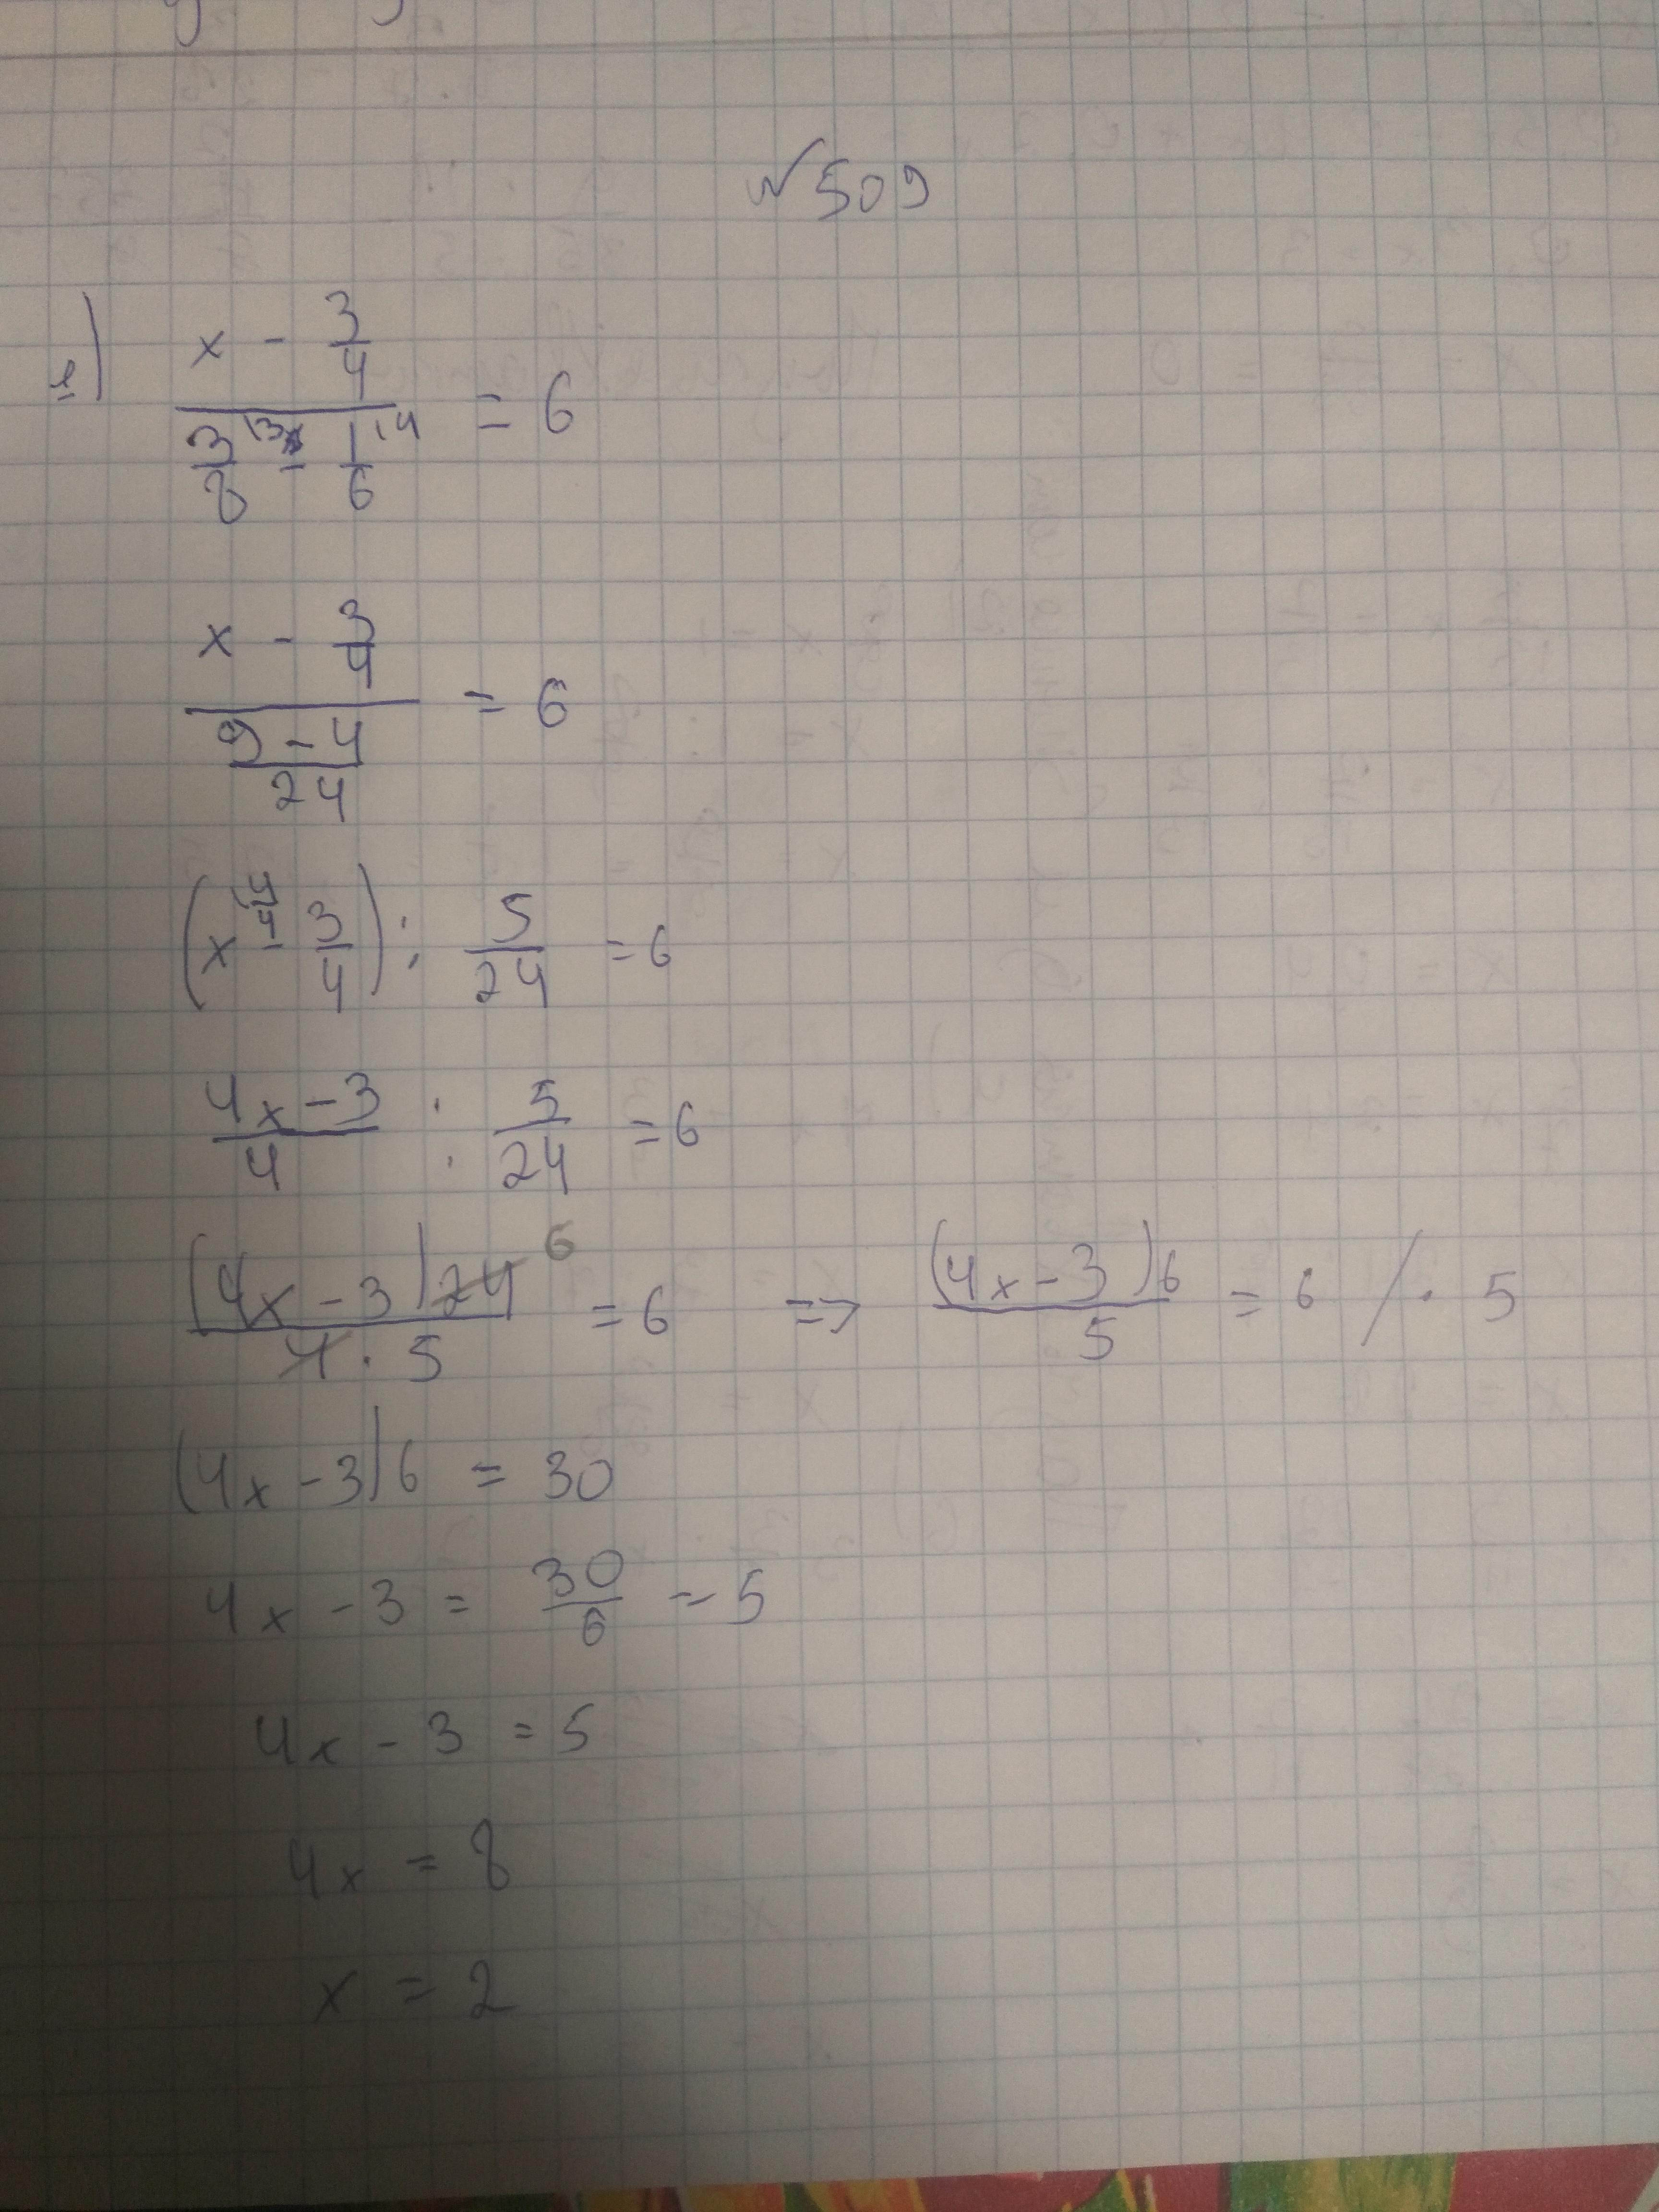 № 509
е) (x - 3/4) / (3/8 - 1/6) = 6
(x - 3/4) / ((9 - 4)/24) = 6
(x - 3/4) : 5/24 = 6
(4x - 3)/4 : 5/24 = 6
((4x - 3) 24)/(4 · 5) = 6 => ((4x - 3) 6)/5 = 6 / · 5
(4x - 3) 6 = 30
4x - 3 = 30/6 = 5
4x - 3 = 5
4x = 8
x = 2